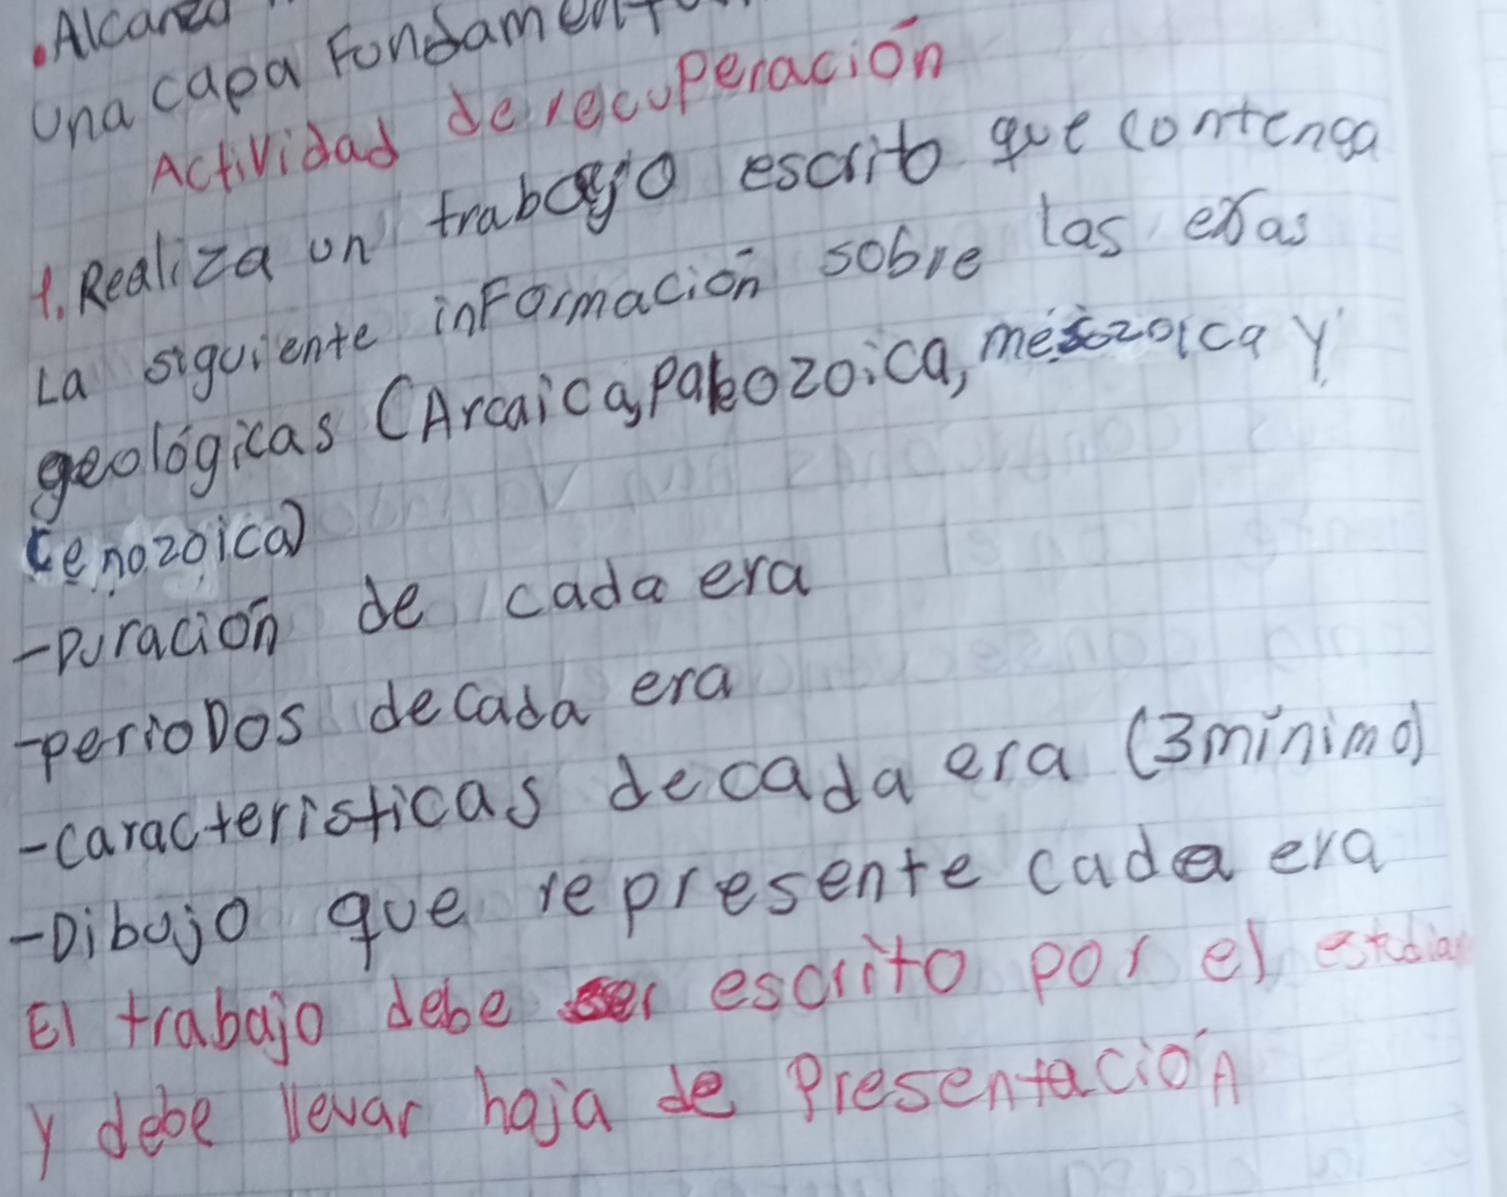 •Alcanzo
una capa Fundament
Actividad de recuperación
1. Realiza un trabajo escrito que contenga
La siguiente información sobre las eras
geológicas (Arcaica, paleozoica, mesozoica y
cenozoica)
-Duración de cada era
-perioDos de cada era
-caracteristicas de cada era (3 mínimo)
-Dibujo que represente cada era
El trabajo debe ser escrito por el estudian
y debe llevar hoja de Presentación